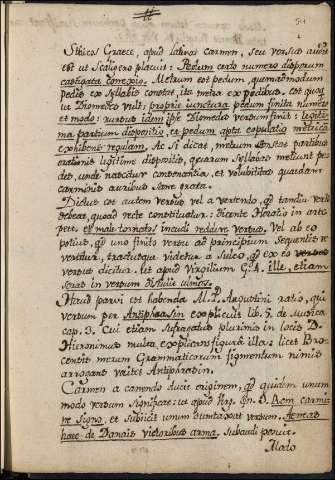 54
Stichos Graece, apud latinos carmen, seu versus audit
est ut Scaligero placuit: Pedum certo numero disporum
castigata connexio. Metrum est pedum, quemadmodum
pedes ex syllabis constat, ita metra ex pedibus. est quoq
ut Diomedes vult; proprie iunctura pedum finita numero
et modo: rursus idem ipse Diomedes versum finit: legiti
ma partium dispositio, et pedum apta copulatio metricam
exhibens regulam. Ac si dicat, metrum constat partibus
orationis legitime dispositis, quarum syllabas metiunt pe
des, unde nascitur consonantia, et volubilitas quaedam
carminis auribus sane grata.
Dictus est autem versus vel a vertendo, qd tamdiu verti
debeat, quoad recte constituatur: dicente Horatio in arte
poet. et male tornatos incudi reddere versus. Vel ab eo
potius, qd uno finito versu ad principium sequentis re
vertitur, tractusque videtur a sulco, qd ex eo versus
versus dicitur. Ut apud Virgilium G. 4. ille etiam
seras in versum distulit ulmos.
Haud parvi est habenda M. D. Augustini ratio, qui
versum per Antiphrasin explicuit lib. 5. de musica
cap. 3. Cui etiam suffragatus plurimis in locis D.
Hieronimus multa explicans figura illa: licet Bros
censis merum Grammaticorum figmentum nimis
arroganter vocitet Antiphrasin.
Carmen a canendo ducit originem, qd quidem unum
modo versum significat: ut apud Virg. Æn. 3. Rem carmi
ne signo, et subiicit unum dumtaxat versum. Aeneas
haec de Danais victoribus arma. subaudi posuit.
Modo